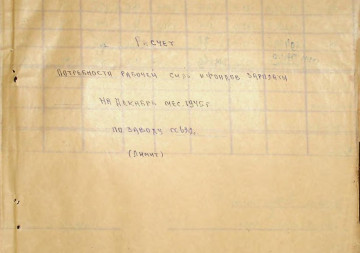 Расчет
потребности рабочей силы и фондов зарплаты
на декабрь мес. 1945 г
по заводу
(лимит)